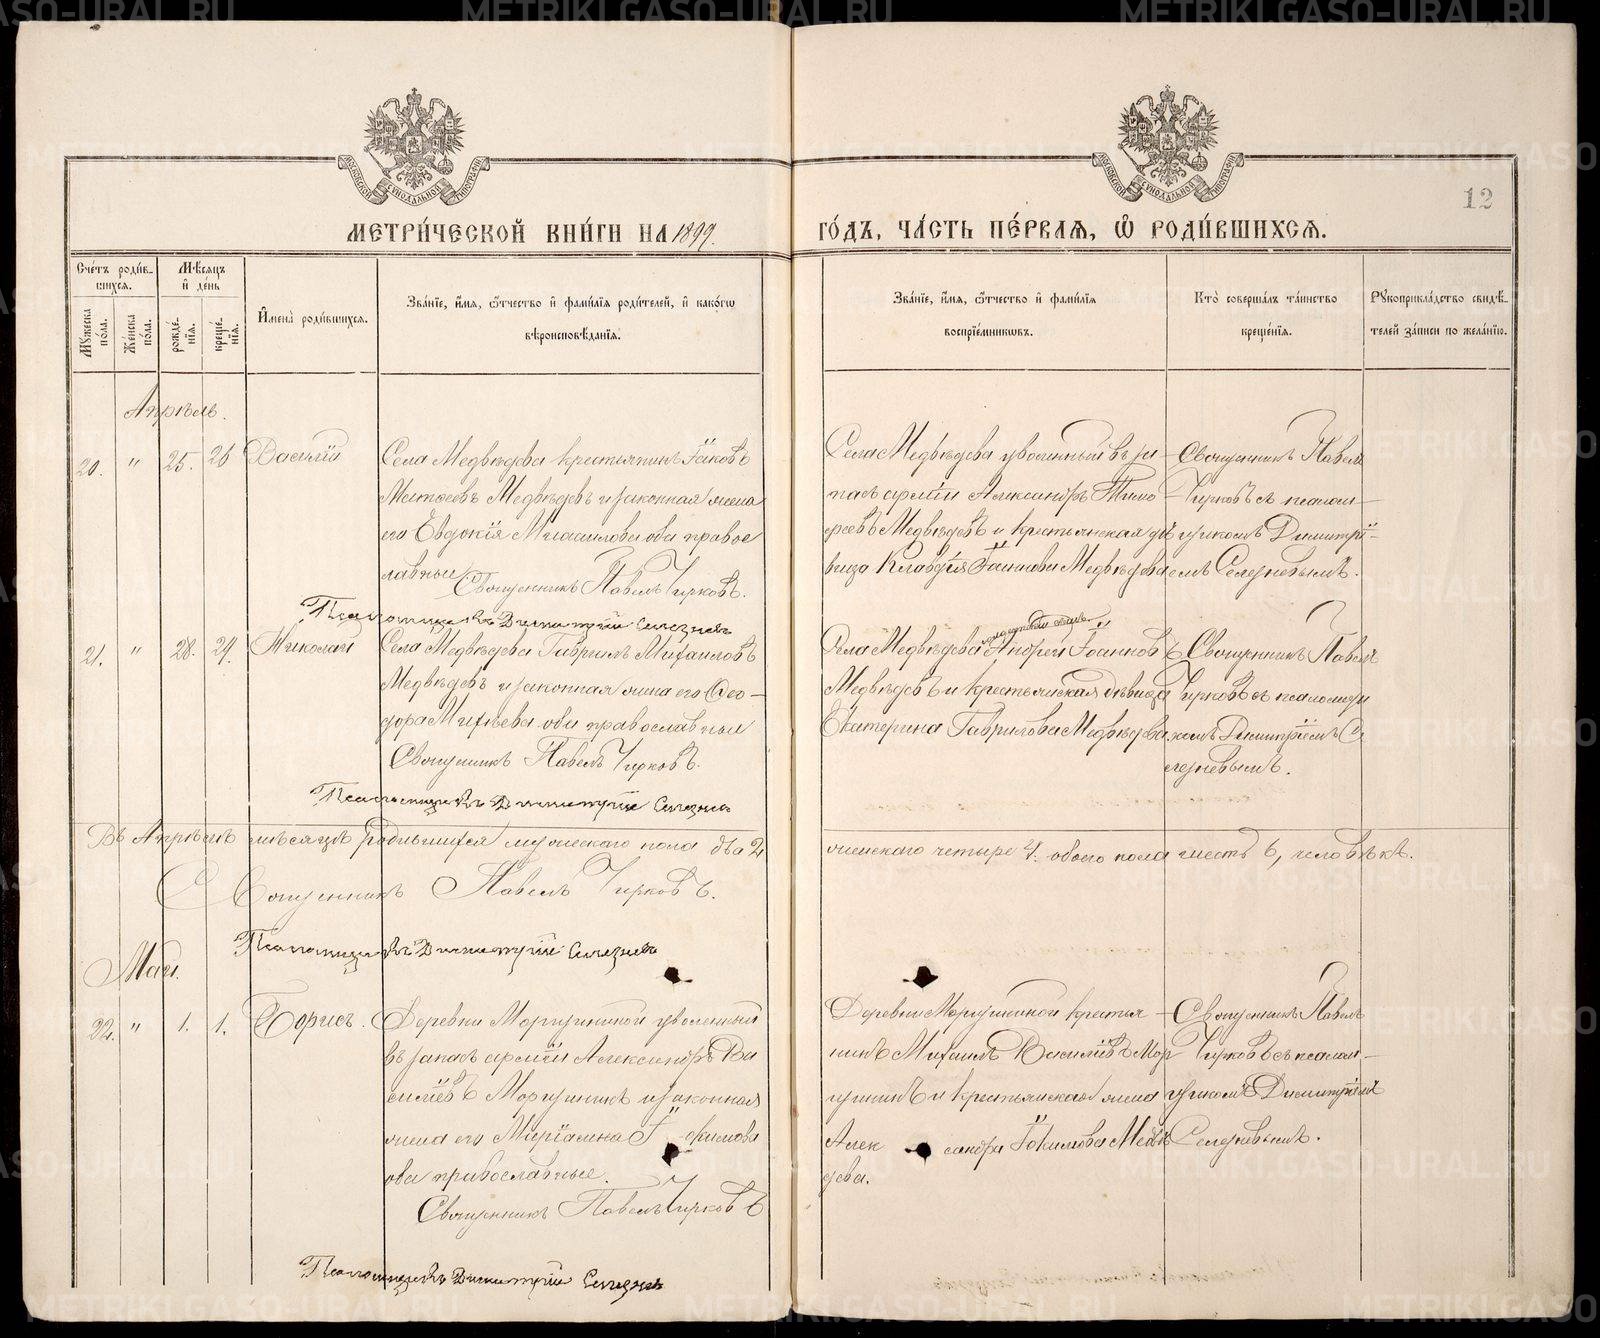 12
МЕТРИ́ЧЕСКОЙ КНИ́ГИ НА 1899. ГО́ДЪ, ЧА́СТЬ ПЕ́РВАЯ, Ѽ РОДИ́ВШИХСЯ.
Сче́тъ роди́в-
шихся.
Мꙋ́жеска по́ла.
Же́нска по́ла.
Мѣ́сяцъ и҆ де́нь
рожде́-
нїѧ.
креще́-
нїѧ.
И҆мена̀ роди́вшихсѧ.
Зва́нїе, и҆́мѧ, ѻ҆́тчество и҆ фами́лїѧ роди́телей, и҆ како́гѡ
вѣроисповѣ́данїѧ.
Зва́нїе, и҆́мѧ, ѻ҆́тчество и҆ фами́лїѧ
воспрїе́мниковъ.
Кто̀ соверша́лъ та́инство
креще́нїѧ.
Рꙋкоприкла́дство свидѣ́-
телей за́писи по жела́нїю.
Апрѣль.
20. " 25. 26 Василій
Села Медвѣдева крестьянинъ Іаковъ
Матѳеевъ Медвѣдевъ и законная жена
его Евдокія оба правос
лавные
Священникъ Павелъ Чирковъ.
Псаломщикъ Димитрій Селезневъ
Села Медвѣдева уволенный въ за-
пасъ арміи Александръ Тимо
феевъ Медвѣдевъ и крестьянская дѣ
вица Клавдія Іаннова Медвѣдева
Священникъ Павелъ
Чирковъ съ псалом-
щикомъ Димитрі-
емъ Селезневымъ.
21. " 28. 29. Николай
Села Медвѣдева Гавріилъ Михаиловъ
Медвѣдевъ и законная жена его Ѳео-
дора оба православные
Священникъ Павелъ Чирковъ.
Псаломщикъ Димитрій Селезневъ
Села Медвѣдева Андрей Іоанновъ
Медвѣдевъ и крестьянская дѣвица
Екатерина Гаврилова Медвѣдева
Священникъ Павелъ
Чирковъ съ псаломщи
комъ Димитріемъ Се
лезневымъ.
Въ Апрѣлѣ мѣсяцѣ родившихся мужескаго пола два 2
женскаго четыре 4. обоего пола шесть 6, человѣкъ.
Священникъ Павелъ Чирковъ.
Псаломщикъ Димитрій Селезневъ
Май.
22. " 1. 1. Борисъ.
Деревни Моргуниной уволенный
въ запасъ арміи Александръ Ва
силіевъ Моргунинъ и законная
жена его Іокимова
оба православные.
Священникъ Павелъ Чирковъ
Псаломщикъ Димитрій Селезневъ
Деревни Моргуниной крестья-
нинъ Михаилъ Василіевъ Мор
гунинъ и крестьянская жена
Александра Іокимова Медвѣ
дева.
Священникъ Павелъ
Чирковъ съ псалом-
щикомъ Димитріемъ
Селезневымъ.
METRIKI.GASO-URAL.RU